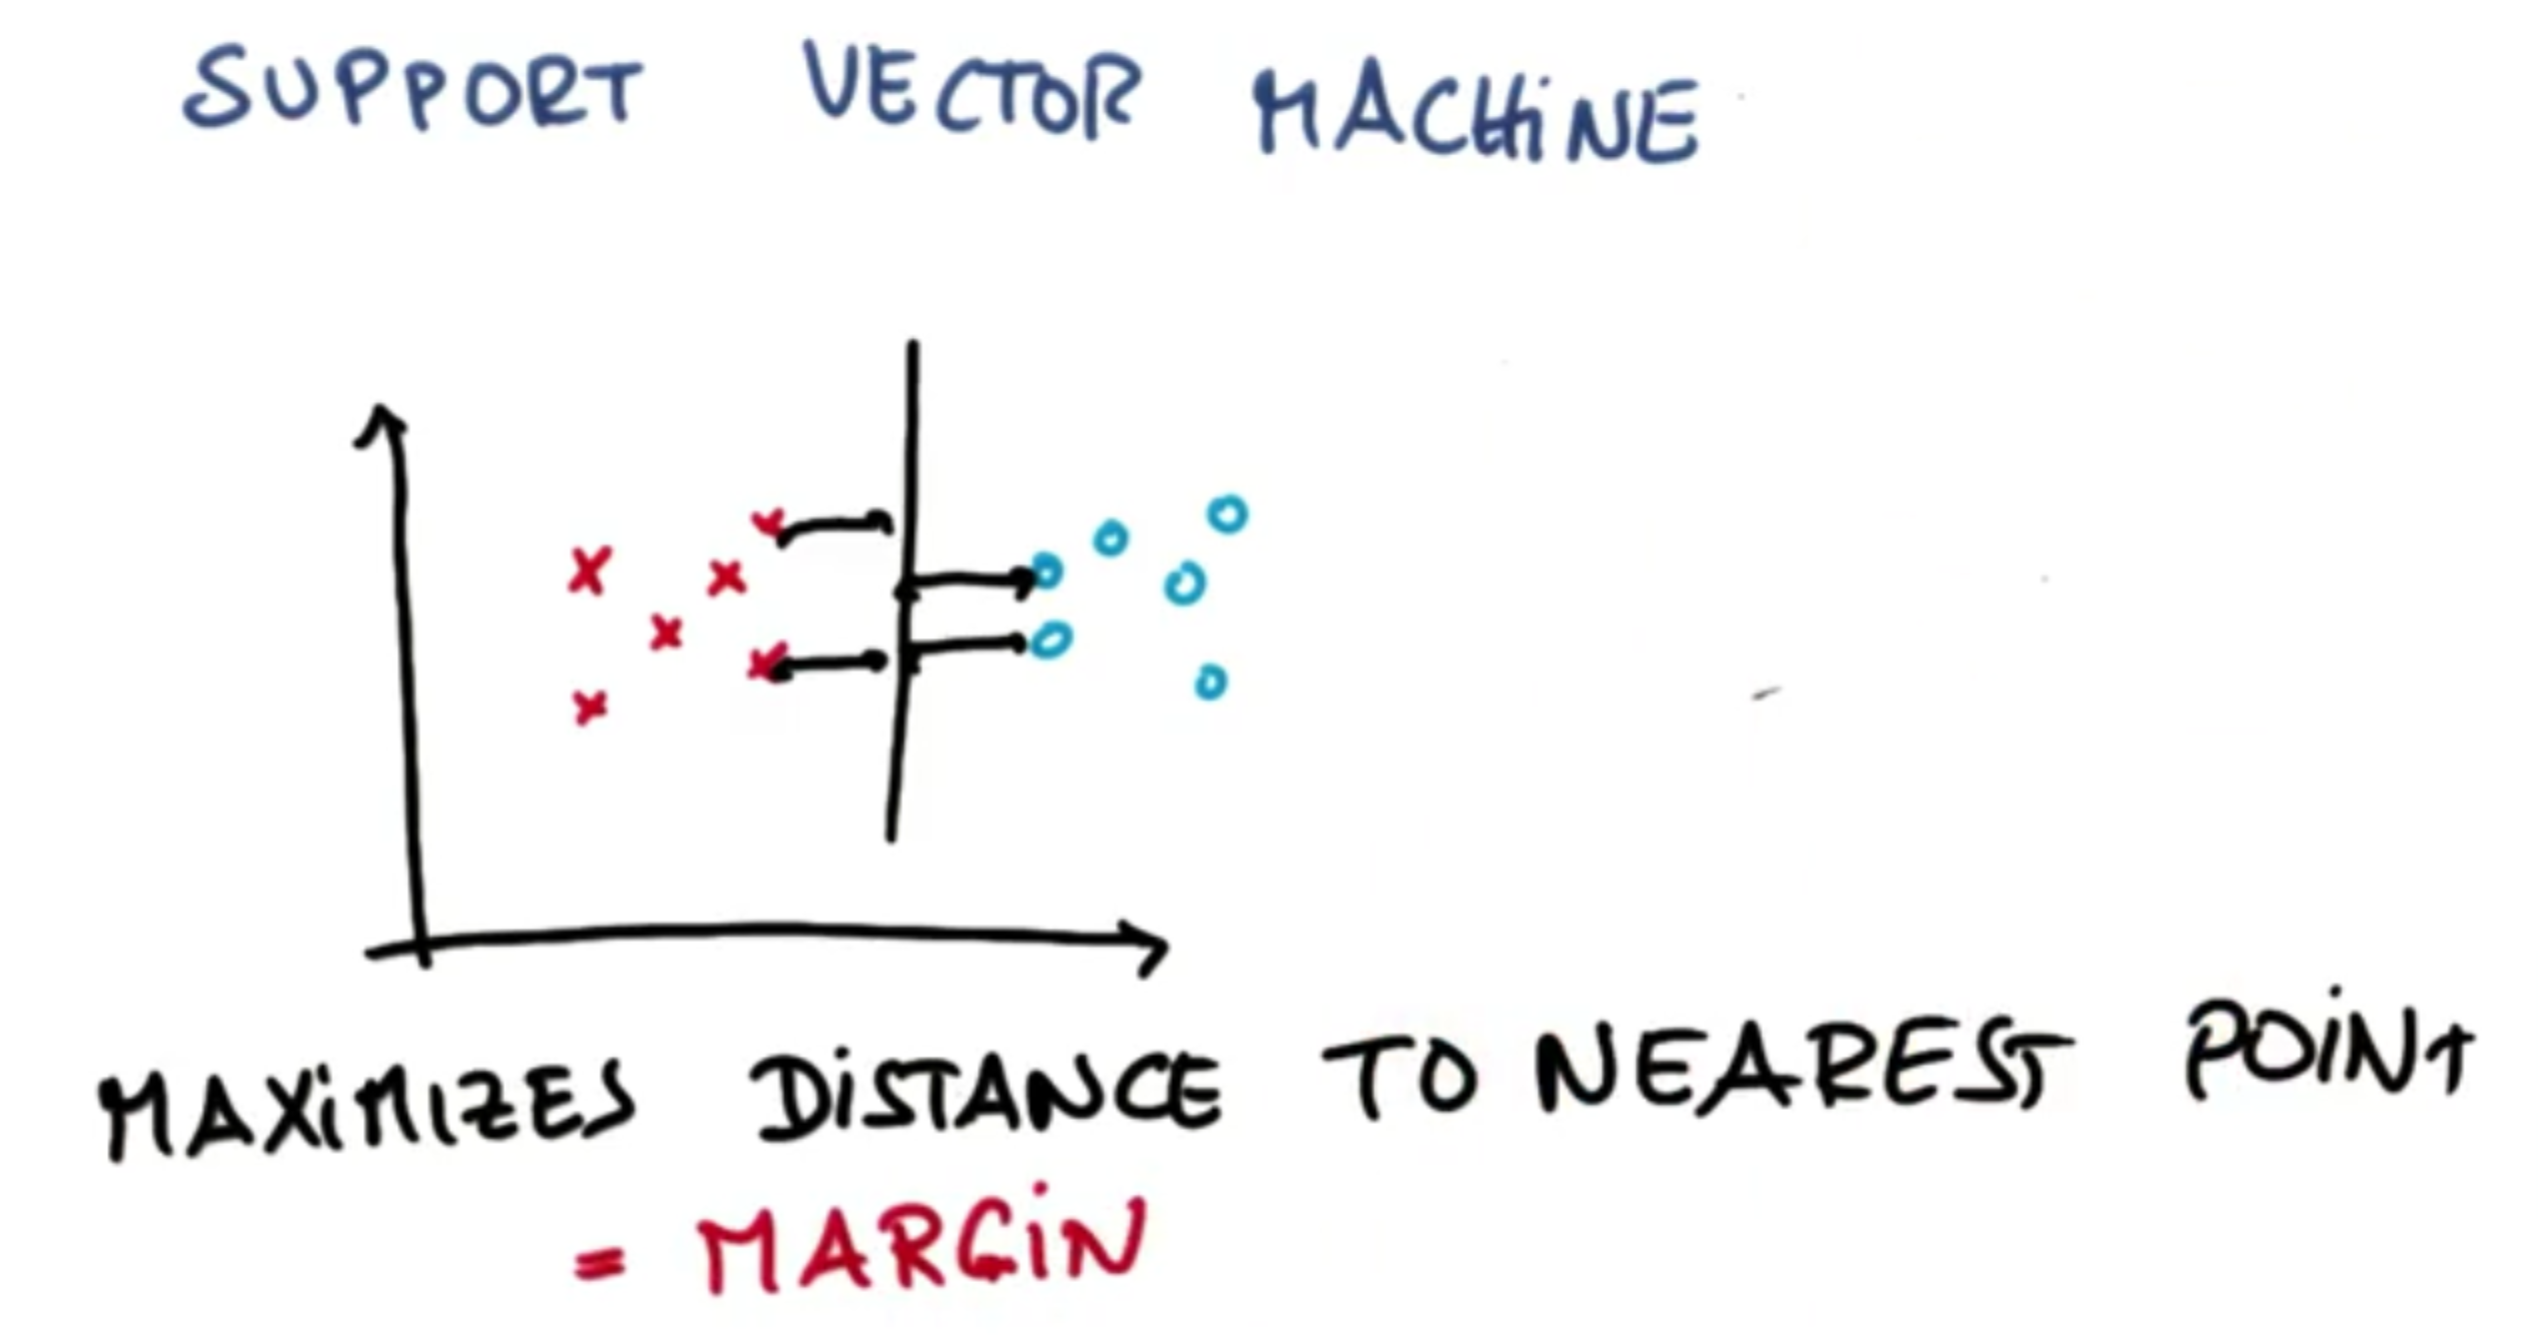 SUPPORT VECTOR MACHiNE
MAXiMIZES DiSTANCE TO NEAREST POiNT
= MARGiN